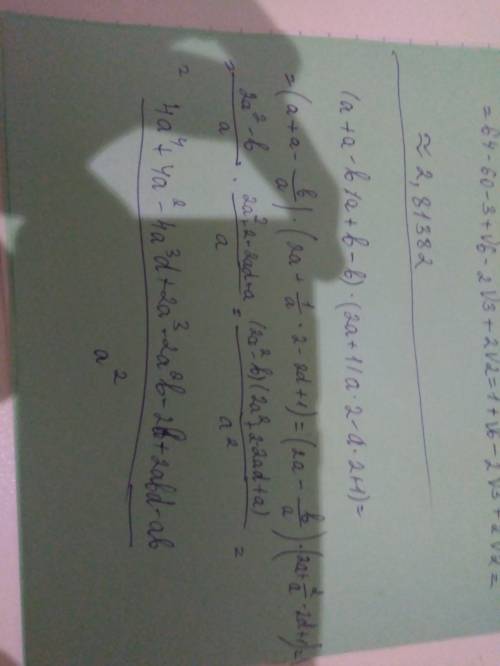 = 64 - 60 - 3 + √6 - 2√3 + 2√2 = 1 + √6 - 2√3 + 2√2 =
≈ 2,81382
(a + a - b/a + b - b) · (2a + 1/a · 2 - d · 2 + 1) =
= (a + a - b/a) · (2a + 1/a · 2 - 2d + 1) = (2a - b/a) · (2a + 2/a - 2d + 1) =
= (2a² - b)/a · (2a² + 2 - 2ad + a)/a = (2a² - b)(2a² + 2 - 2ad + a)/a² =
= (4a⁴ + 4a² - 4a³d + 2a³ - 2a²b - 2b + 2abd - ab)/a²